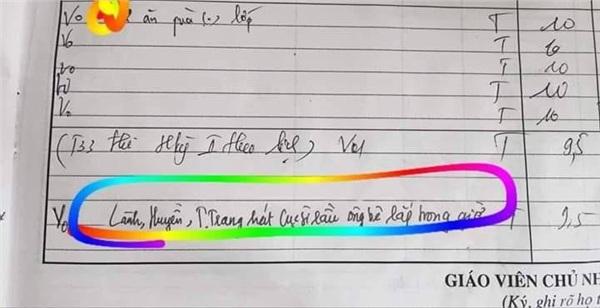 Vo ăn quà (.) lớp T 10
Vo T 10
Vo T 10
Vo T 10
Vo T 10
(T33 thi Học kỳ II theo lịch) Vo1 T 9,5
Vo Lãnh, Huyền, T.Trang hát Cục sì lầu ông bê lắp trong giờ T 9,5
GIÁO VIÊN CHỦ NH
(Ký, ghi rõ họ